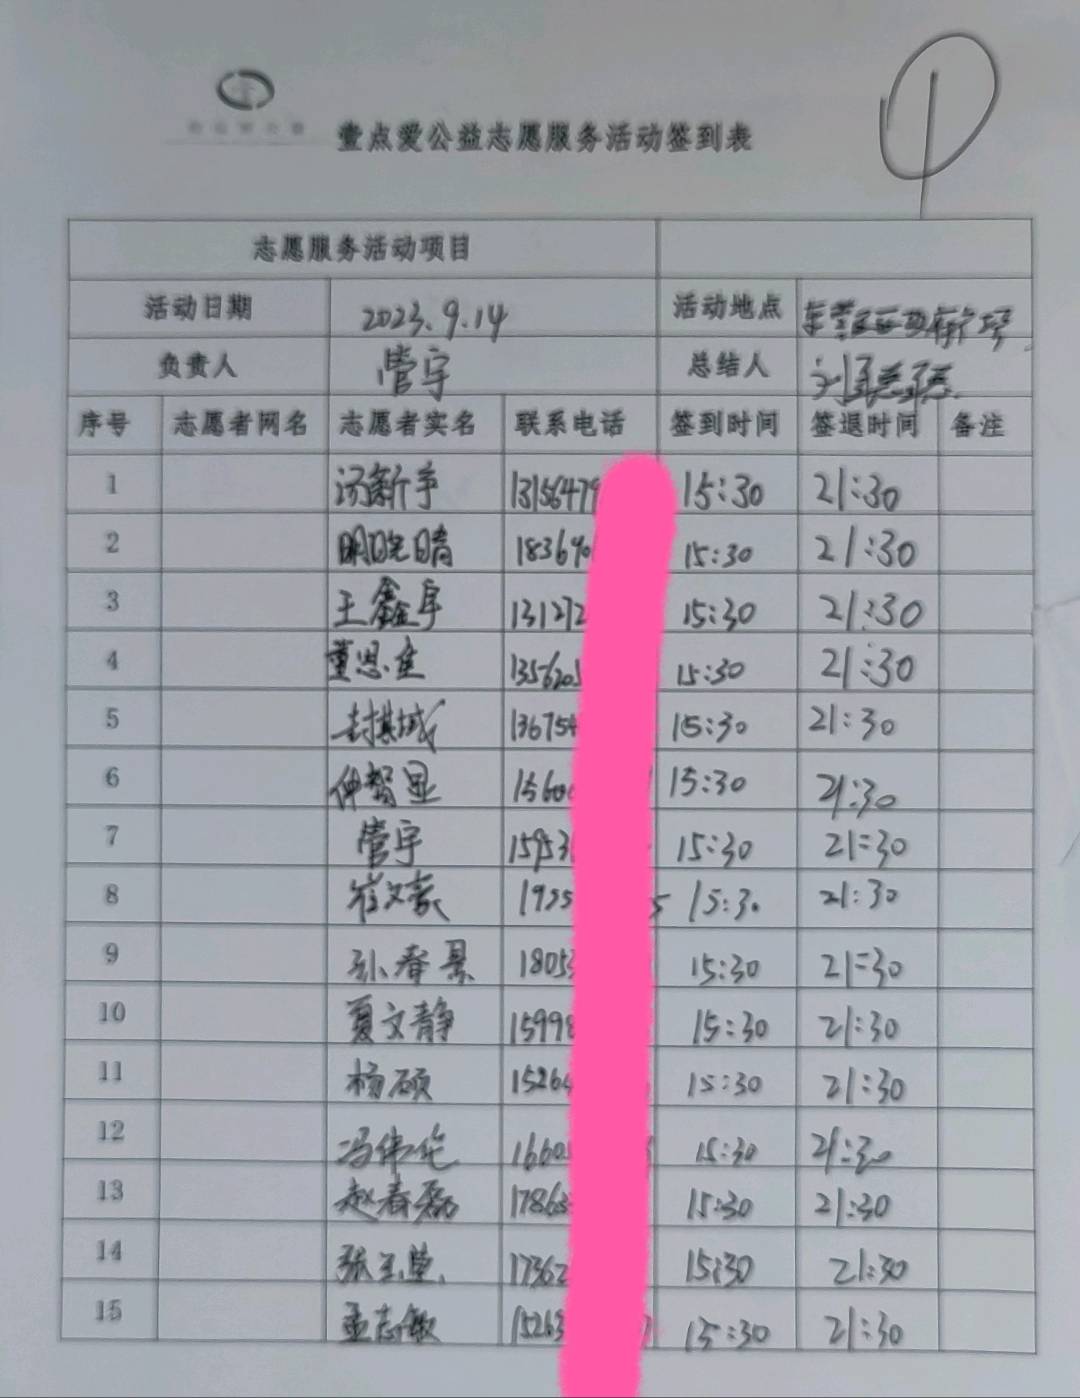 壹点爱公益志愿服务活动签到表
1
志愿服务活动项目
活动日期 2023.9.14 活动地点
负责人 管宇 总结人
序号 志愿者网名 志愿者实名 联系电话 签到时间 签退时间 备注
1 1315647 15:30 21:30
2 明晓晴 18369 15:30 21:30
3 王鑫宇 131272 15:30 21:30
4 董思佳 1356205 15:30 21:30
5 封其城 136754 15:30 21:30
6 仲智显 1560 15:30 21:30
7 管宇 15953 15:30 21:30
8 崔文豪 1955 5 15:30 21:30
9 孙春景 18053 15:30 21:30
10 夏文静 15998 15:30 21:30
11 杨硕 15264 15:30 21:30
12 冯伟华 1660 15:30 21:30
13 赵春磊 17863 15:30 21:30
14 张玉莹 17362 15:30 21:30
15 孟志敏 15263 15:30 21:30